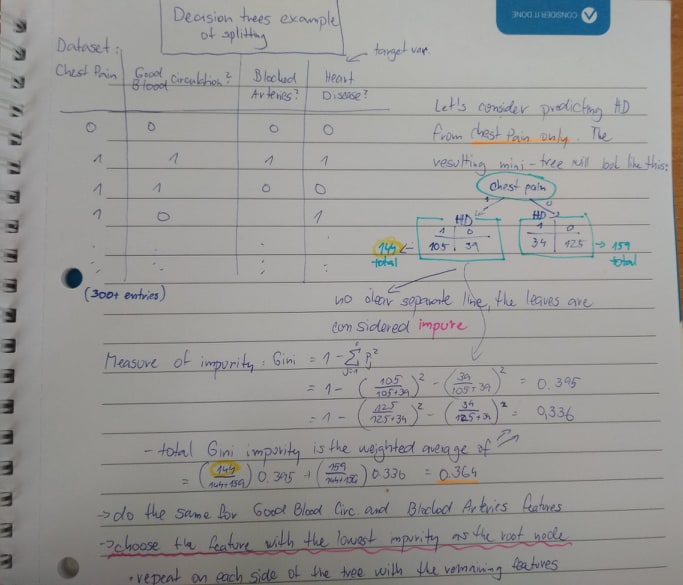 CONSIDER IT DONE
Decasion trees example
of splitting
Dataset:
target var.
Chest Pain Good Blood Circulation? Blocked Arteries? Heart Disease?
0 0 0 0
1 1 1 1
1 1 0 0
1 0 1
: : : :
(300+ entries)
Let's consider predicting HD
from chest Pain only. The
resulting mini-tree will look like this:
chest pain
1 0
HD HD
1 0 1 0
144 ← 105 39 34 125 → 159
total total
no clear separate line, the leaves are
considered impure
Measure of impurity: Gini = 1 - Σ Pj²
= 1 - (105/105+39)² - (39/105+39)² = 0.395
= 1 - (125/125+34)² - (34/125+34)² = 0,336
- total Gini impurity is the weighted average of
= (144/144+159) 0.395 + (159/144+159) 0.336 = 0.364
→ do the same for Good Blood Circ and Blocked Arteries features
→ choose the feature with the lowest impurity as the root node
• repeat on each side of the tree with the remaining features